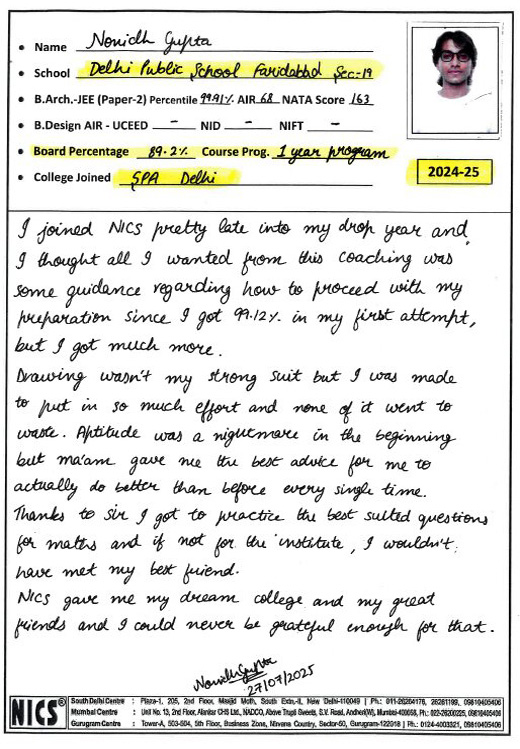 • Name Nonidh Gupta
• School Delhi Public School Faridabad Sec-19
• B.Arch.-JEE (Paper-2) Percentile 99.91% AIR 68 NATA Score 163
• B.Design AIR - UCEED - NID - NIFT -
• Board Percentage 89.2% Course Prog. 1 year program
• College Joined SPA Delhi
2024-25
I joined NICS pretty late into my drop year and
I thought all I wanted from this coaching was
some guidance regarding how to proceed with my
preparation since I got 99.12% in my first attempt,
but I got much more.
Drawing wasn't my strong suit but I was made
to put in so much effort and none of it went to
waste. Aptitude was a nightmare in the beginning
but ma'am gave me the best advice for me to
actually do better than before every single time.
Thanks to Sir I got to practice the best suited questions
for maths and if not for the institute, I wouldn't
have met my best friend.
NICS gave me my dream college and my great
friends and I could never be grateful enough for that.
Nonidh Gupta
27/07/2025
NICS®
South Delhi Centre : Plaza-1, 205, 2nd Floor, Masjid Moth, South Extn.-II, New Delhi-110049 | Ph.: 011-26264176, 26261199, 09810405406
Mumbai Centre : Unit No. 13, 2nd Floor, Alankar CHS Ltd., NADCO, Above Trupti Sweets, S.V. Road, Andheri(W), Mumbai-400058, Ph.: 022-26200225, 09810405406
Gurugram Centre : Tower-A, 503-504, 5th Floor, Business Zone, Nirvana Country, Sector-50, Gurugram-122018 | Ph.: 0124-4003321, 09810405406